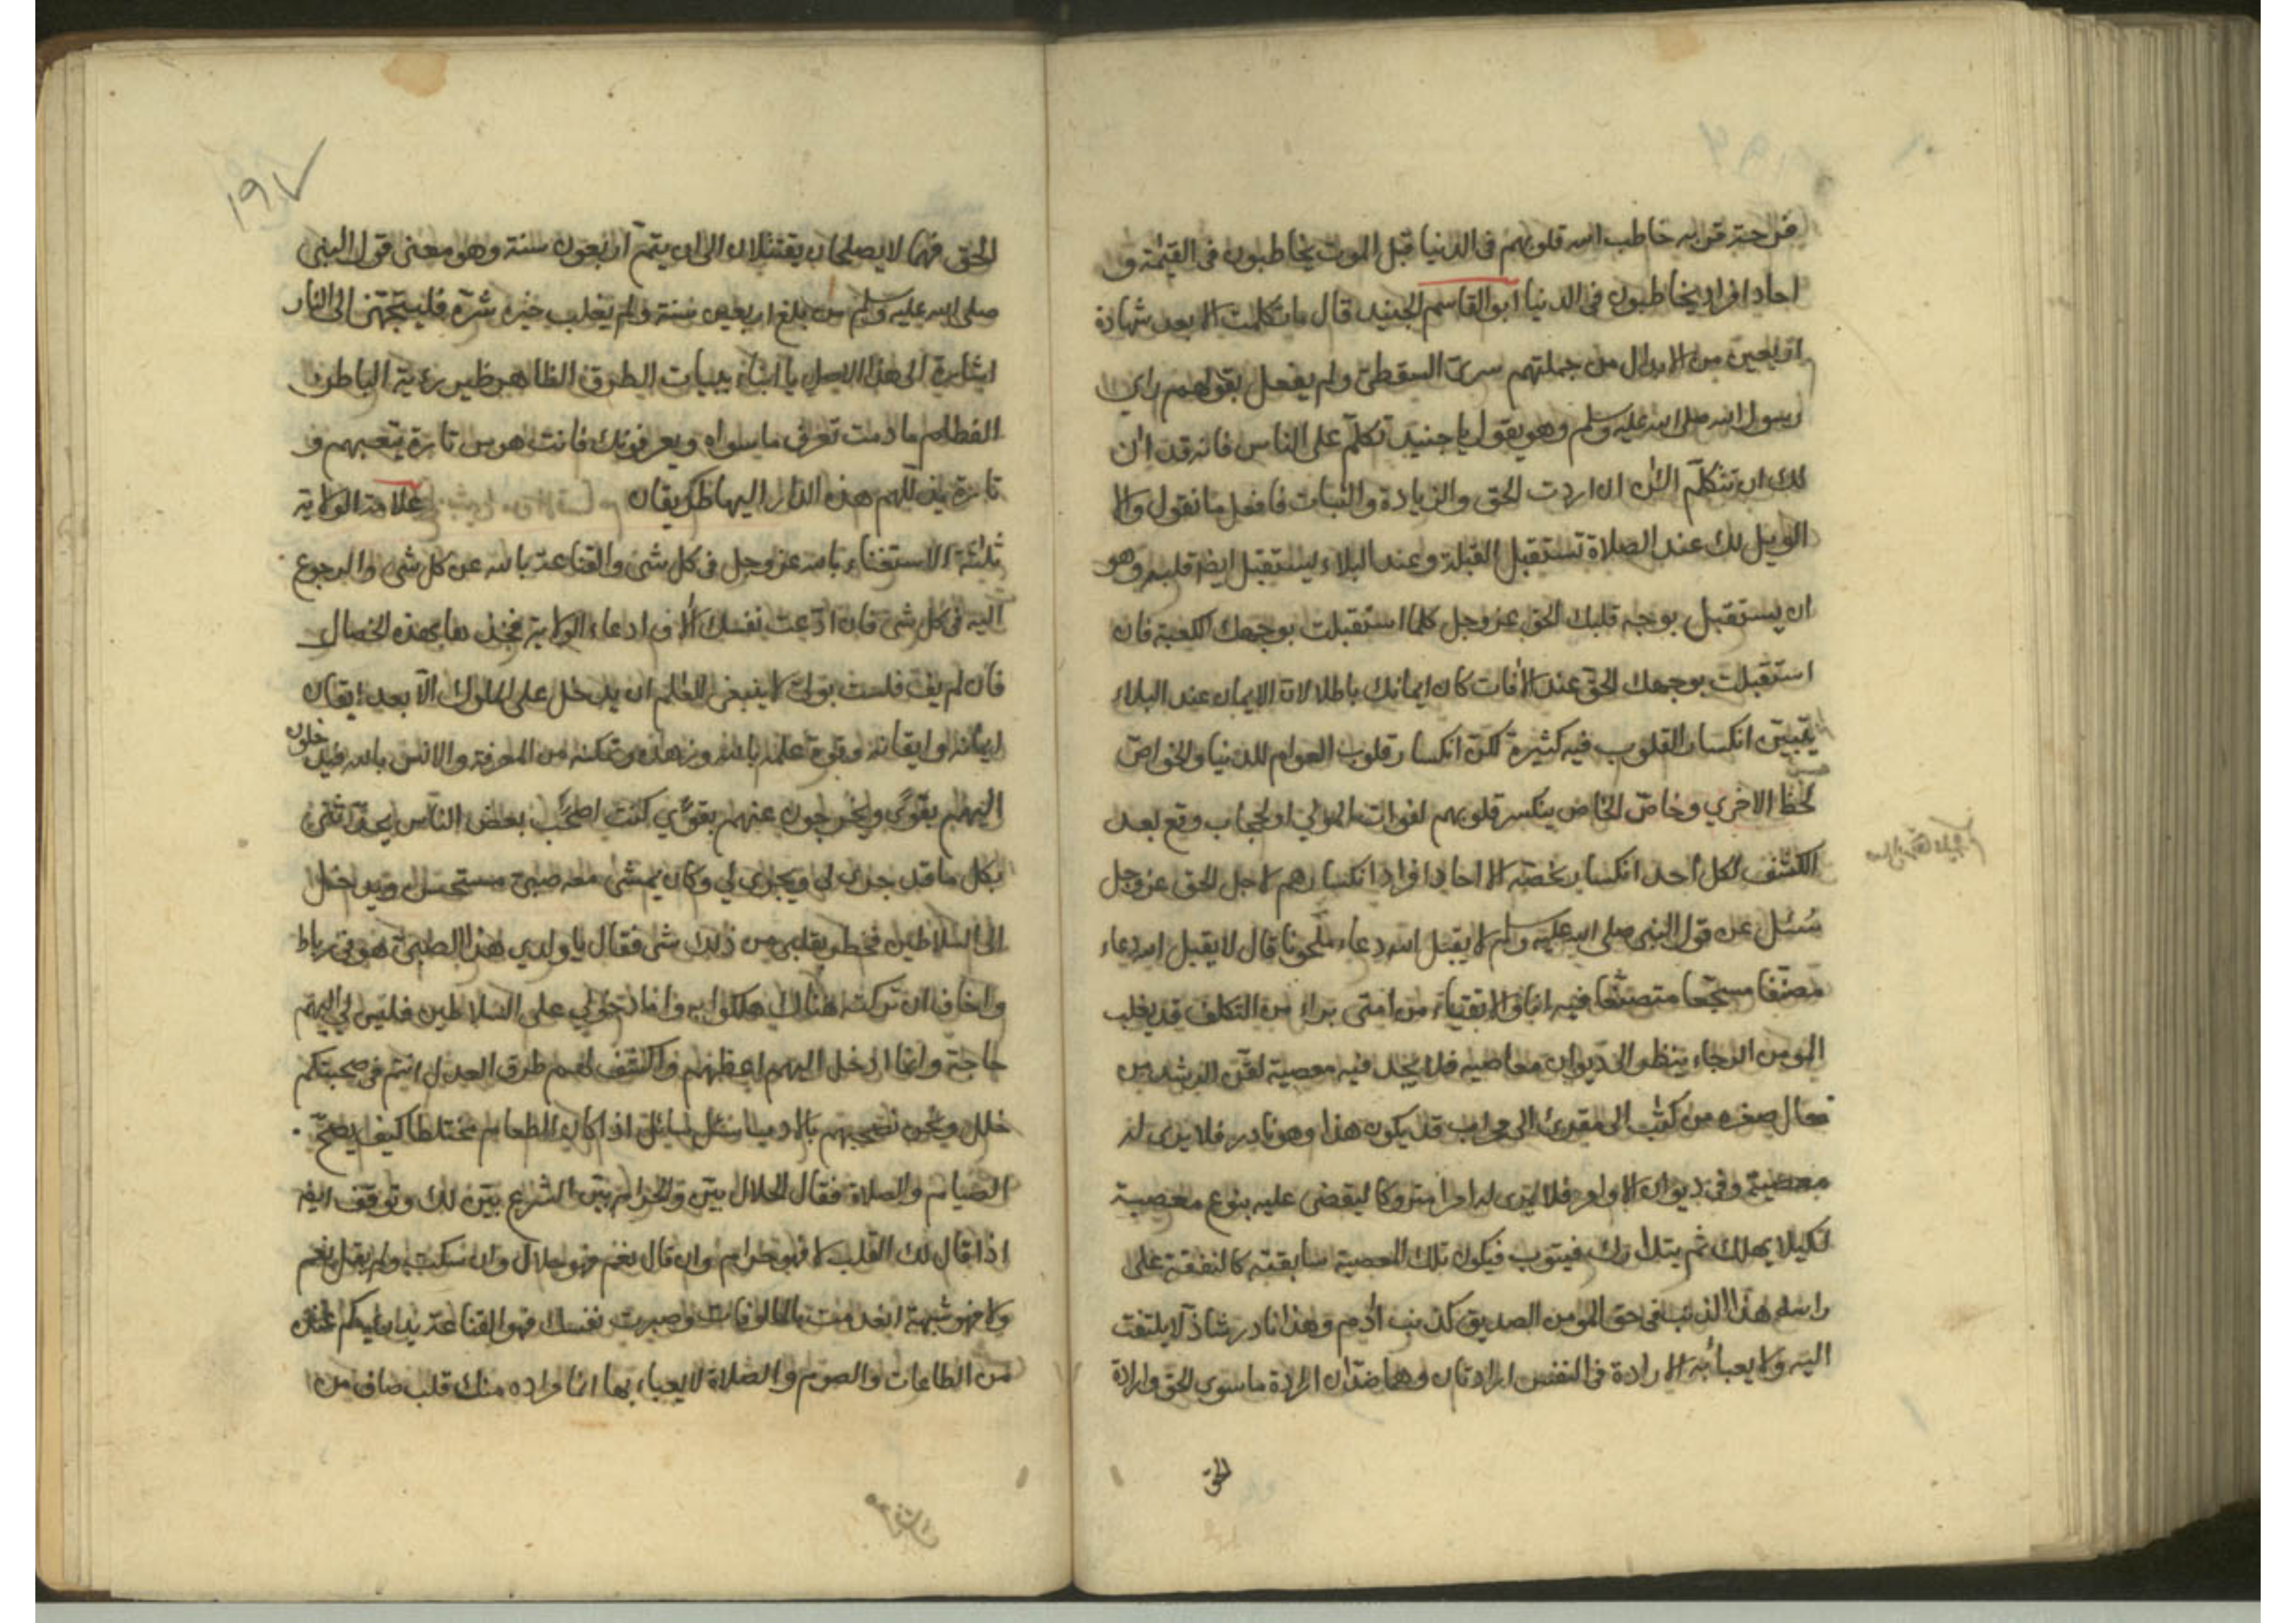 خاطب الله قلوبهم فى الدنيا قبل الموت يخاطبون فى القيمة و
احاد افراد يخاطبون فى الدنيا ابو القاسم الجنيد قال ما تكلمت الا بعد شهادة
اربعين من الابدال من جملتهم سرى السقطى ولم يفعل بقولهم راى
رسول الله صلى الله عليه وسلم وهو يقول يا جنيد تكلم على الناس فانه قد ان
لك ان تتكلم الان ان اردت الحق والزيادة والثبات فافعل ما نقول والا
الويل لك عند الصلاة تستقبل القبلة وعند البلاء يستقبل ايضا قلبه وهو
ان يستقبل بوجه قلبك الحق عز وجل كلما استقبلت بوجهك الكعبة فان
استقبلت بوجهك الحق عند الافات كان ايمانك باطلا لان الايمان عند البلاء
يتبين انكسار القلوب فيه كثيرة لكن انكسار قلوب العوام للدنيا والخواص
لحظ الاخرى وخاص الخاص ينكسر قلوبهم لفوات المولى او لحجاب وقع بعد
الكشف لكل احد انكسار يخصه الا احاد افراد انكسارهم لاجل الحق عز وجل
سُئل عن قول النبى صلى الله عليه وسلم لا يقبل الله دعاء ملحونا قال لا يقبل الله دعاء
مصنفا مسجعا متصنعا فيه انا والاتقياء من امتى براء من التكلف قد يغلب
المومن الرجاء ينظر الى ديوان معاصيه فلا يجد فيه معصية
من كتب الى مقرئ الى محراب قد يكون هذا وهو نادر فلا يرى له
معصية وفى ديوان الاوامر فلا يرى له امرا متروكا ليقضى عليه بنوع معصية
لكيلا يهلك ثم يتدارك فيتوب فيكون تلك المعصية سابقته كالنفقة على
راسه هذا الذنب فى حق المومن الصديق كذنب ادم وهذا نادر شاذ لا يلتفت
اليه ولا يعبأ به الارادة فى النفس ارادتان وهما ضدان ارادة ما سوى الحق وارادة
الحق
١٩٧
الحق فهما لا يصطلحان يقتتلان الى ان يتم اربعون سنة وهو معنى قول النبى
صلى الله عليه وسلم من بلغ اربعين سنة ولم يغلب خيره شره فليتجهز الى النار
اشارة الى هذا يا ابناء بنيات الطرق الظاهر ظير رؤية الباطن
الفطام ما دمت تعرف ما سواه ويعرفونك فانت هوس تارة يتعبهم و
تارة هذه الدار اليها طريقان علامة الولاية
ثلثة الاستغناء بالله عز وجل فى كل شىء والقناعة بالله عن كل شىء والرجوع
اليه فى كل شىء فان ادعت نفسك ادعاء الولاية فخذها بهذه الخصال
فان لم يف فلست بولى لا ينبغى للعالم ان يدخل على الملوك الا بعد اتقان
ايمانه وايقانه وقوة علمه بالله وزهده وتمكنه من المعرفة والانس بالله فيدخلون
اليهم بقوى ويخرجون عنهم بقوى كنت اصحب بعض الناس
بكل ما قد جرى لى ويجرى لى وكان يمشى معه صبى مستحسن ويدخل
الى السلاطين فخطر بقلبى من ذلك شىء فقال يا ولدى هذا الصبى هو فى رباط
واخاف ان تركته هناك هلكوا به واما دخولى على السلاطين فليس لى اليهم
حاجة وانما ادخل اليهم اعظهم واكشف لهم طرق العدل انتم فى صحبتكم
خلل ونحن نصحبهم بالادب سئل سائل اذا كان الطعام مختلطا كيف يصح
الصيام والصلاة فقال الحلال بين والحرام بين الشرع بين لك وتوقف ايضا
اذا قال لك القلب لا فهو حرام وان قال نعم فهو حلال وان سكت ولم يقل نعم
ولا فهو شبهة بالمالوفات وصبرت نفسك فهو القناعة
من الطاعات والصوم والصلاة لا يعباء بها انما مراده منك قلب صاف من